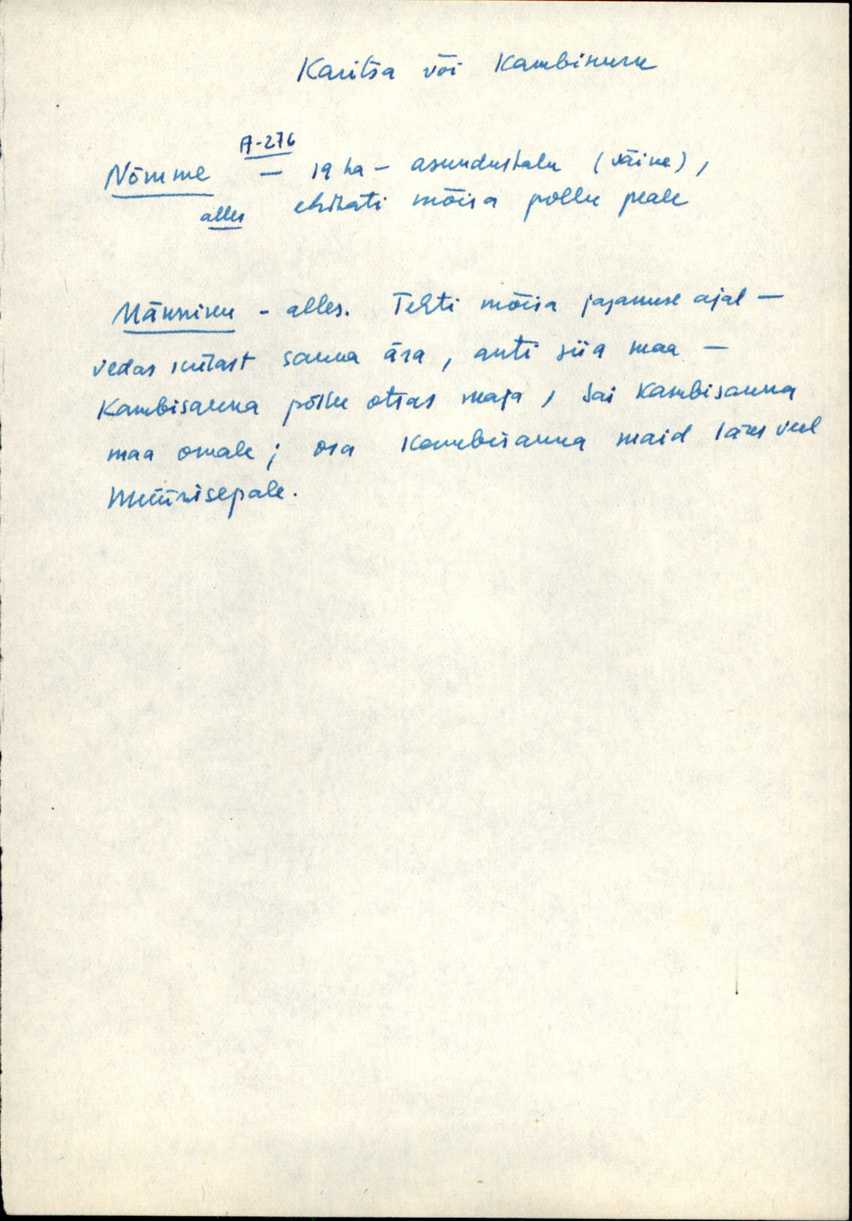 Karitsa või Kambinuru
A-276
Nõmme — 19 ha – asundustalu (väike),
alles ehitati mõisa põllu peale
Männiku - alles. Tehti mõisa jagamise ajal —
vedas külast sauna ära, anti siia maa —
Kambisauna põllu otsas maja, sai Kambisauna
maa omale; osa Kambisauna maid läks veel
Müürisepale.